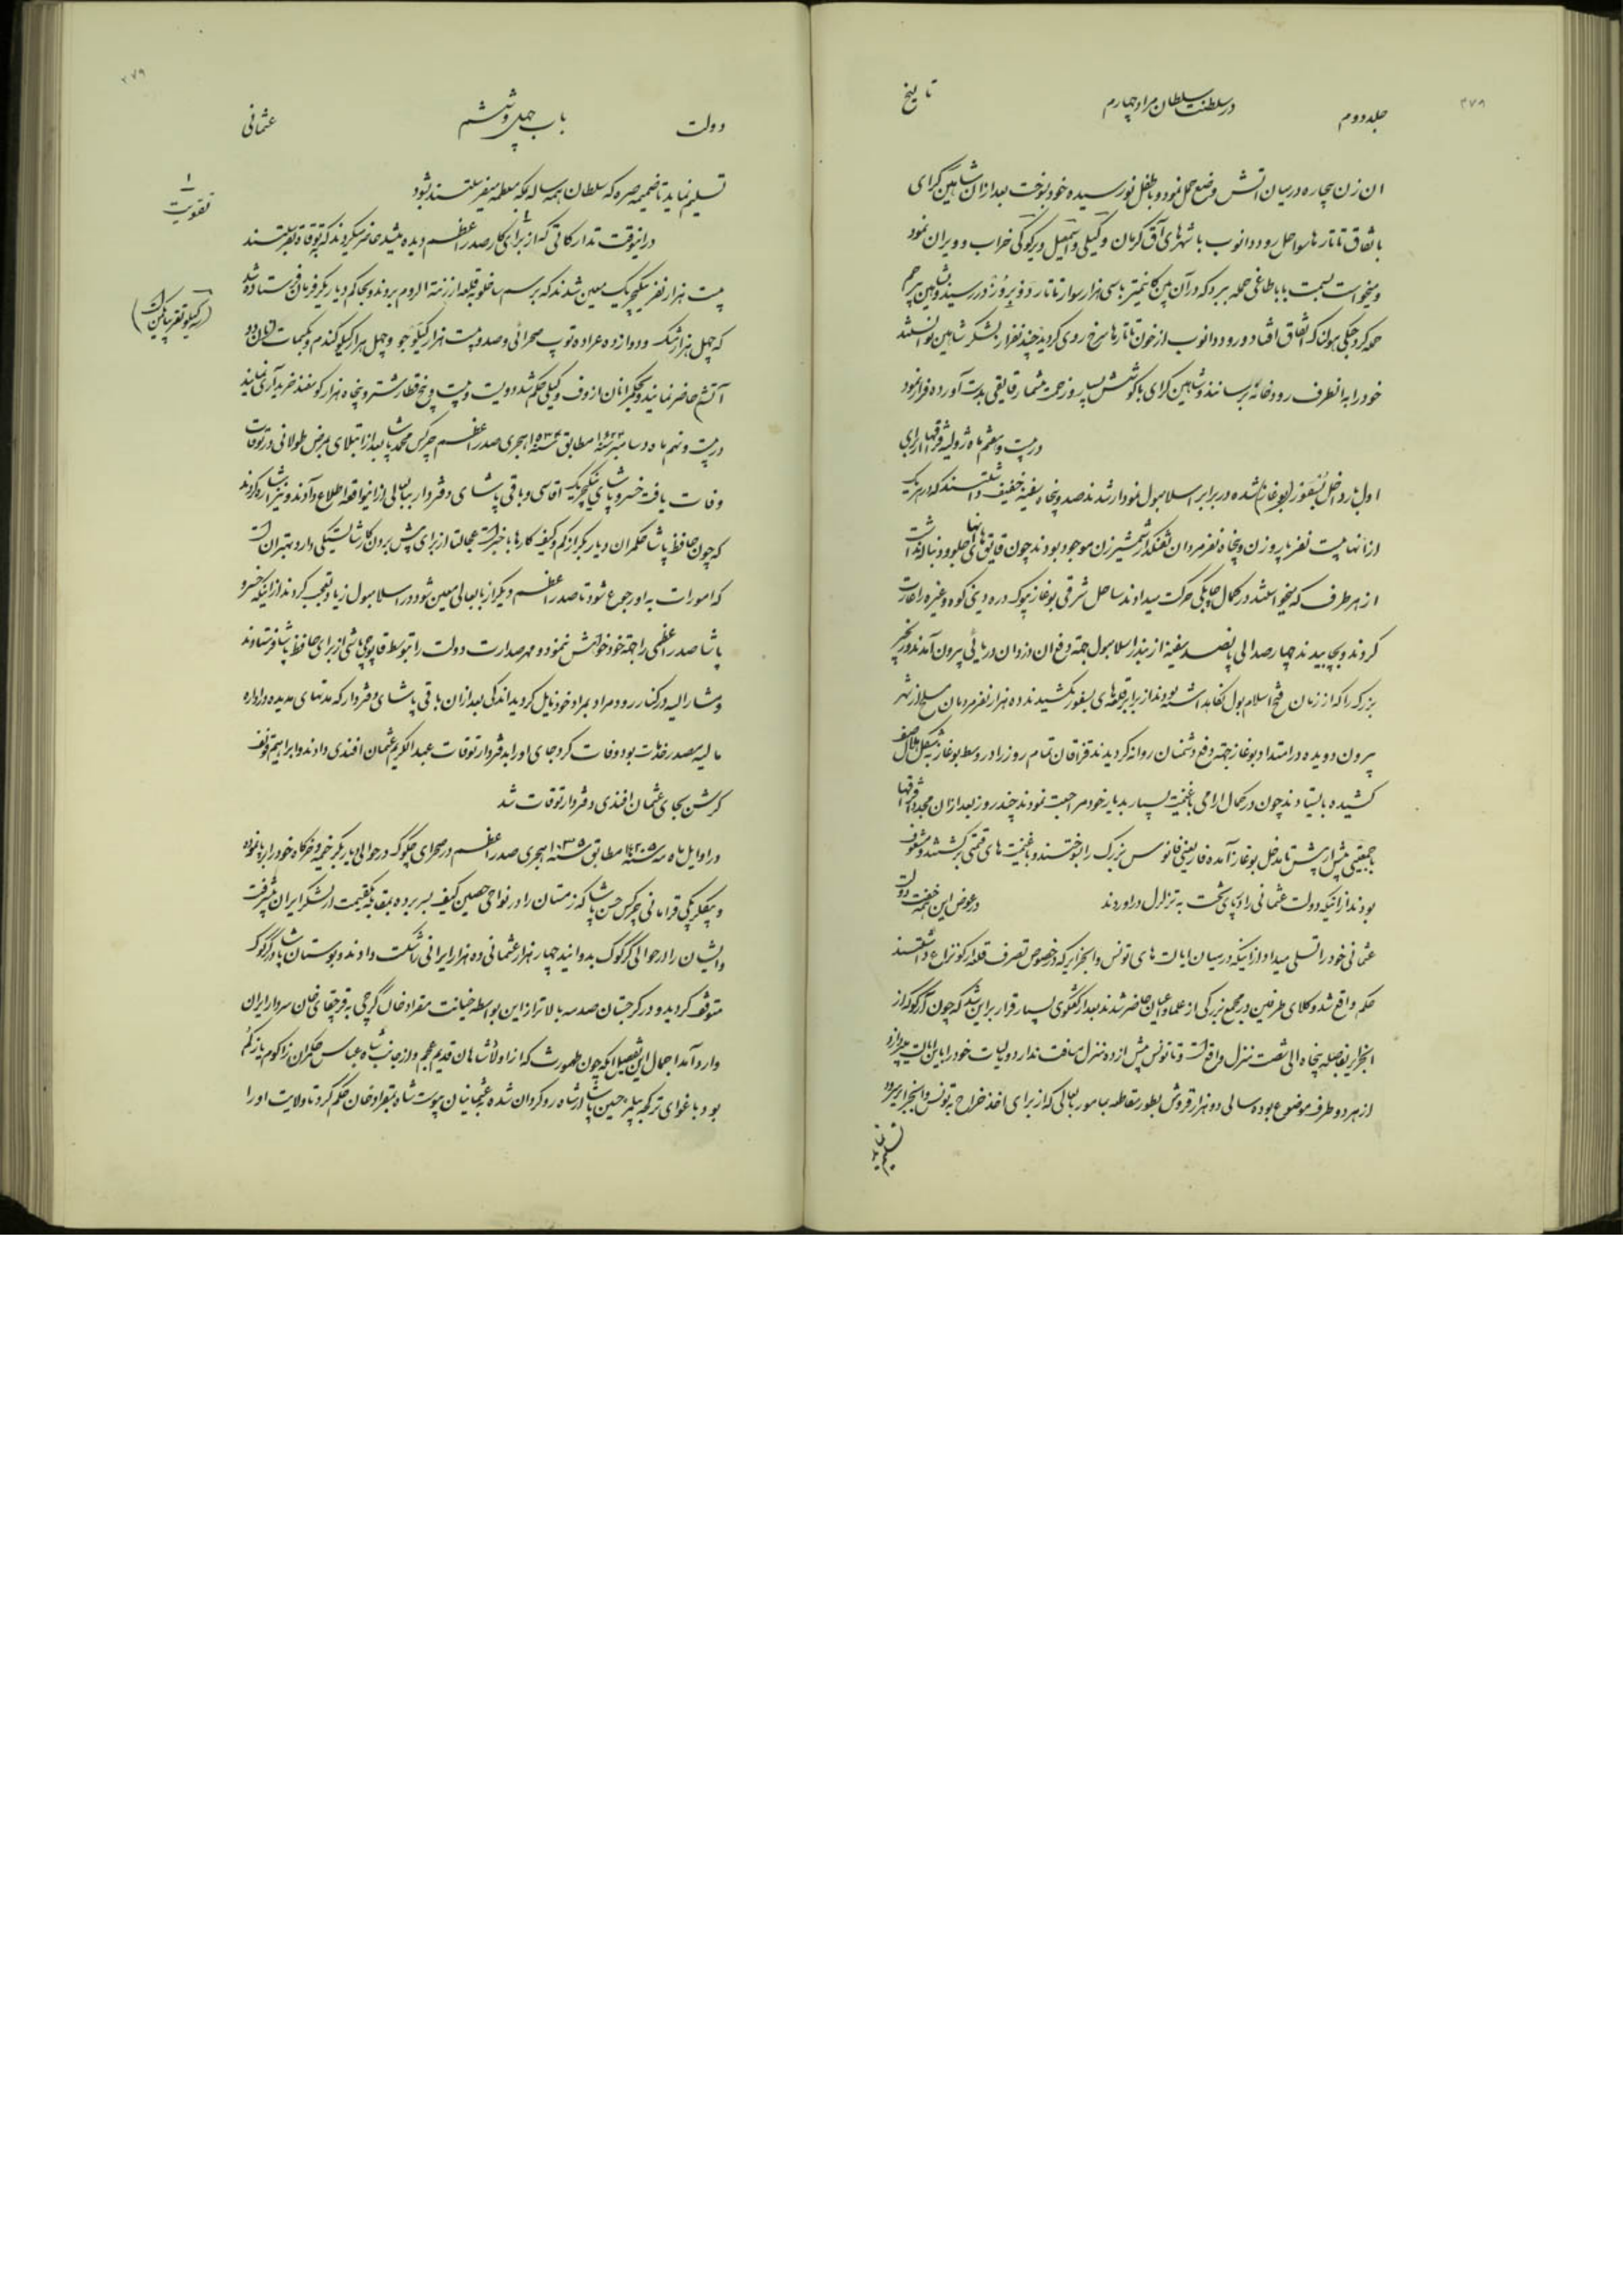 جلد دوم
در سلطنت سلطان مراد چهارم
تاریخ
ان زن بیچاره در میان اتش وضع حمل نمود و با طفل نورسیده خود بسوخت بعد از ان شاهین کرای
باتفاق تاتارها سواحل رود دانوب با شهرهای آق کرمان و کیلی و اسمعیل و خراب و ویران نمود
و میخواست بسمت باباطاغی حمله ببرد که در آن بین کانتمیر با سی هزار سوار تاتار در رسید و بشاهین هجم
حمله کرد جنکی هولناک اتفاق افتاد و رود دانوب از خون تاتارها سرخ روی کردید چند نفر از لشکر شاهین توانستند
خود را به انطرف رودخانه برسانند و شاهین کرای با کوشش بسیار و زحمت بیشمار قایقی بدست آورده فرار نمود
در بیست و هفتم ماه ژولیه قزاقها از برای
اول بار داخل بسفور (بوغاز) شده در برابر اسلامبول نمودار شدند صد و پنجاه سفینه خفیف داشتند که در هر یک
از انها بیست نفر پاروزن و پنجاه نفر مردان تفنکدار شمشیرزن موجود بودند چون قایق های انها جلو و دنباله نداشت
از هر طرف که میخواستند در کمال چابکی حرکت میدادند ساحل شرقی بوغاز بیوک دره و ینی کوه و غیره را غارت
کردند و بچاپیدند چهارصد الی پانصد سفینه از بندر اسلامبول جهته دفع ان دزدان دریائی بیرون آمدند و زنجیر
بزرک را که از زمان فتح اسلامبول نکاهداشته بودند از برابر قلعه های بسفور بکشیدند ده هزار نفر مردمان مسلح از شهر
بیرون دویده در امتداد بوغاز جهته دفع دشمنان روانه کردیدند قزاقان تمام روز را در وسط بوغاز بشکل هلال صف
کشیده بایستادند چون در کمال ارامی با غنیمت بسیار بدیار خود مراجعت نمودند چند روز بعد از ان مجددا قزاقها
با جمعیتی بیش از پیش تا بدخل بوغاز آمده فار یعنی فانوس بزرک را بسوختند و با غنیمت های قیمتی برکشتند و مشعوف
بودند از اینکه دولت عثمانی را در پای تخت به تزلزل دراوردند در عوض این خفت دولت
عثمانی خود را تسلی میداد از اینکه در میان ایالت های تونس و الجزایر که در خصوص تصرف قلعه ارکو نزاع داشتند
حکم واقع شد وکلای طرفین در مجمع بزرکی از علما و اعیان حاضر شدند بعد از کفتکوی بسیار قرار بر این شد که چون ارکو که از
الجزایر بفاصله پنجاه الی شصت منزل واقع است و تا تونس بیش از ده منزل مسافت ندارد و مالیات خود را باین ایالت میپردازد
از هر دو طرف موضوع بوده سالی دو هزار قروش بطور مقاطعه بمامور بابعالی که از برای اخذ خراج به تونس و الجزایر میرود
تسلیم نماید
دولت
باب چهل و ششم
عثمانی
۲۷۹
تسلیم نماید تا ضمیمه صره که سلطان همه ساله بمکه معظمه میفرستند بشود
در انوقت تدارکاتی که از برای کار صدراعظم دیده میشد حاضر میکردند که بتوقات بفرستند
بیست هزار نفر ینکیچریک معین شدند که برسم ساخلو بقلعه ارزنة الروم بروند و بحاکم دیاربکر فرمان فرستاده شد
که چهل هزار شک و دوازده عراده توپ صحرائی و صد و بیست هزار کیلو جو و چهل هزار کیلو کندم و
آتش حاضر نمایند و بحکمرانان ازوف و کیلی حکم شد دویست و بیست و پنج قطار شتر و پنجاه هزار کوسفند خریداری نمایند
در بیست و نهم ماه دسامبر مطابق هجری صدراعظم چرکس محمد پاشا بعد از ابتلای بمرض طولانی در توقات
وفات یافت خسرو پاشای ینکیچریک اقاسی و باقی پاشای دفتردار ببابعالی از اینواقعه اطلاع دادند و نیز اشاره کردند
که چون حافظ پاشا حکمران دیاربکر از کم و کیف کارها باخبر است عجالتا از برای پیش بردن کار شایستکی دارد بهتر ان است
که امورات به او رجوع شود تا صدراعظم دیکر از بابعالی معین شود در اسلامبول زیاد تعجب کردند از اینکه خسرو
پاشا صدراعظمی را جهته خود خواهش ننمود و مهر صدارت دولت را بتوسط قاپوچی باشی از برای حافظ پاشا فرستادند
و مشار الیه در کنار رود مراد بمراد خود نایل کردید اندکی بعد از ان باقی پاشای دفتردار که مدتهای مدیده در اداره
مالیه مصدر خدمات بود وفات کرد جای او را به دفتردار توقات عبدالکریم عثمان افندی دادند و ابراهیم
بجای عثمان افندی دفتردار توقات شد
در اوایل ماه مه مطابق سنه ۱۰۳۵ هجری صدراعظم در صحرای چکوک در حوالی دیاربکر خیمه و خرکاه خود را برپا نموده
و بیکلربیکی قرامانی چرکس حسن پاشا که زمستان را در نواحی حصین کیف بسر برده بمقابله یکقسمت از لشکر ایران بشتافت
و ایشان را در حوالی کرکوک بدوانید چهار هزار عثمانی ده هزار ایرانی را شکست دادند و بوستان پاشا در کرکوک
متوقف کردید و در کرجستان صدمه بالاتر از این بواسطه خیانت مقراو خان کرجی به قرچقای خان سردار ایران
وارد آمد اجمال این تفصیل انکه چون طهمورث که از اولاد شاهان قدیم عجم و از جانب شاه عباس حکمران
بود باغوای ترکجه بیلمز حسین پاشا از شاه رو کردان شده بعثمانیان پیوست شاه بمقراو خان حکم کرد تا ولایت او را
۱
تقویت